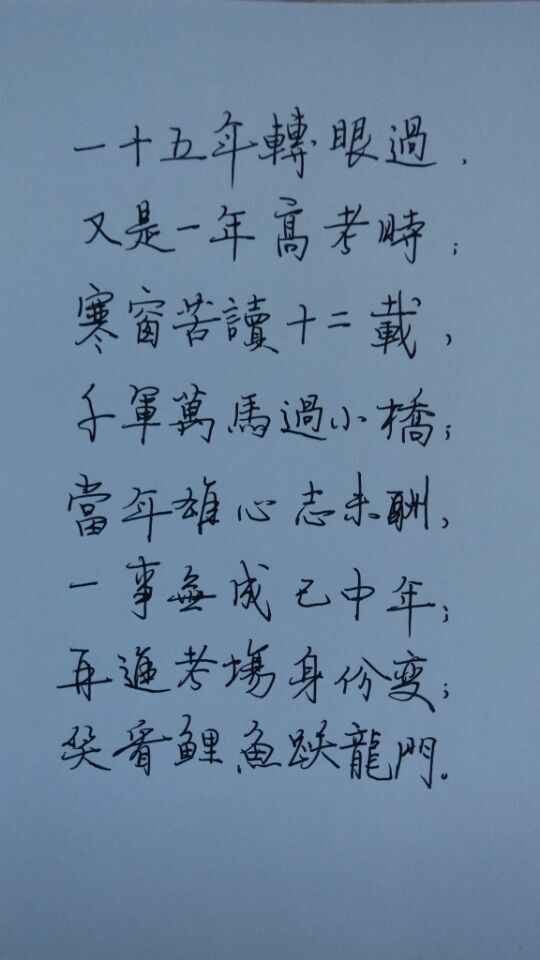 一十五年轉眼過，
又是一年高考時；
寒窗苦讀十二載，
千軍萬馬過小橋；
當年雄心志未酬，
一事無成已中年；
再進考場身份变；
笑看鯉魚跃龍門。